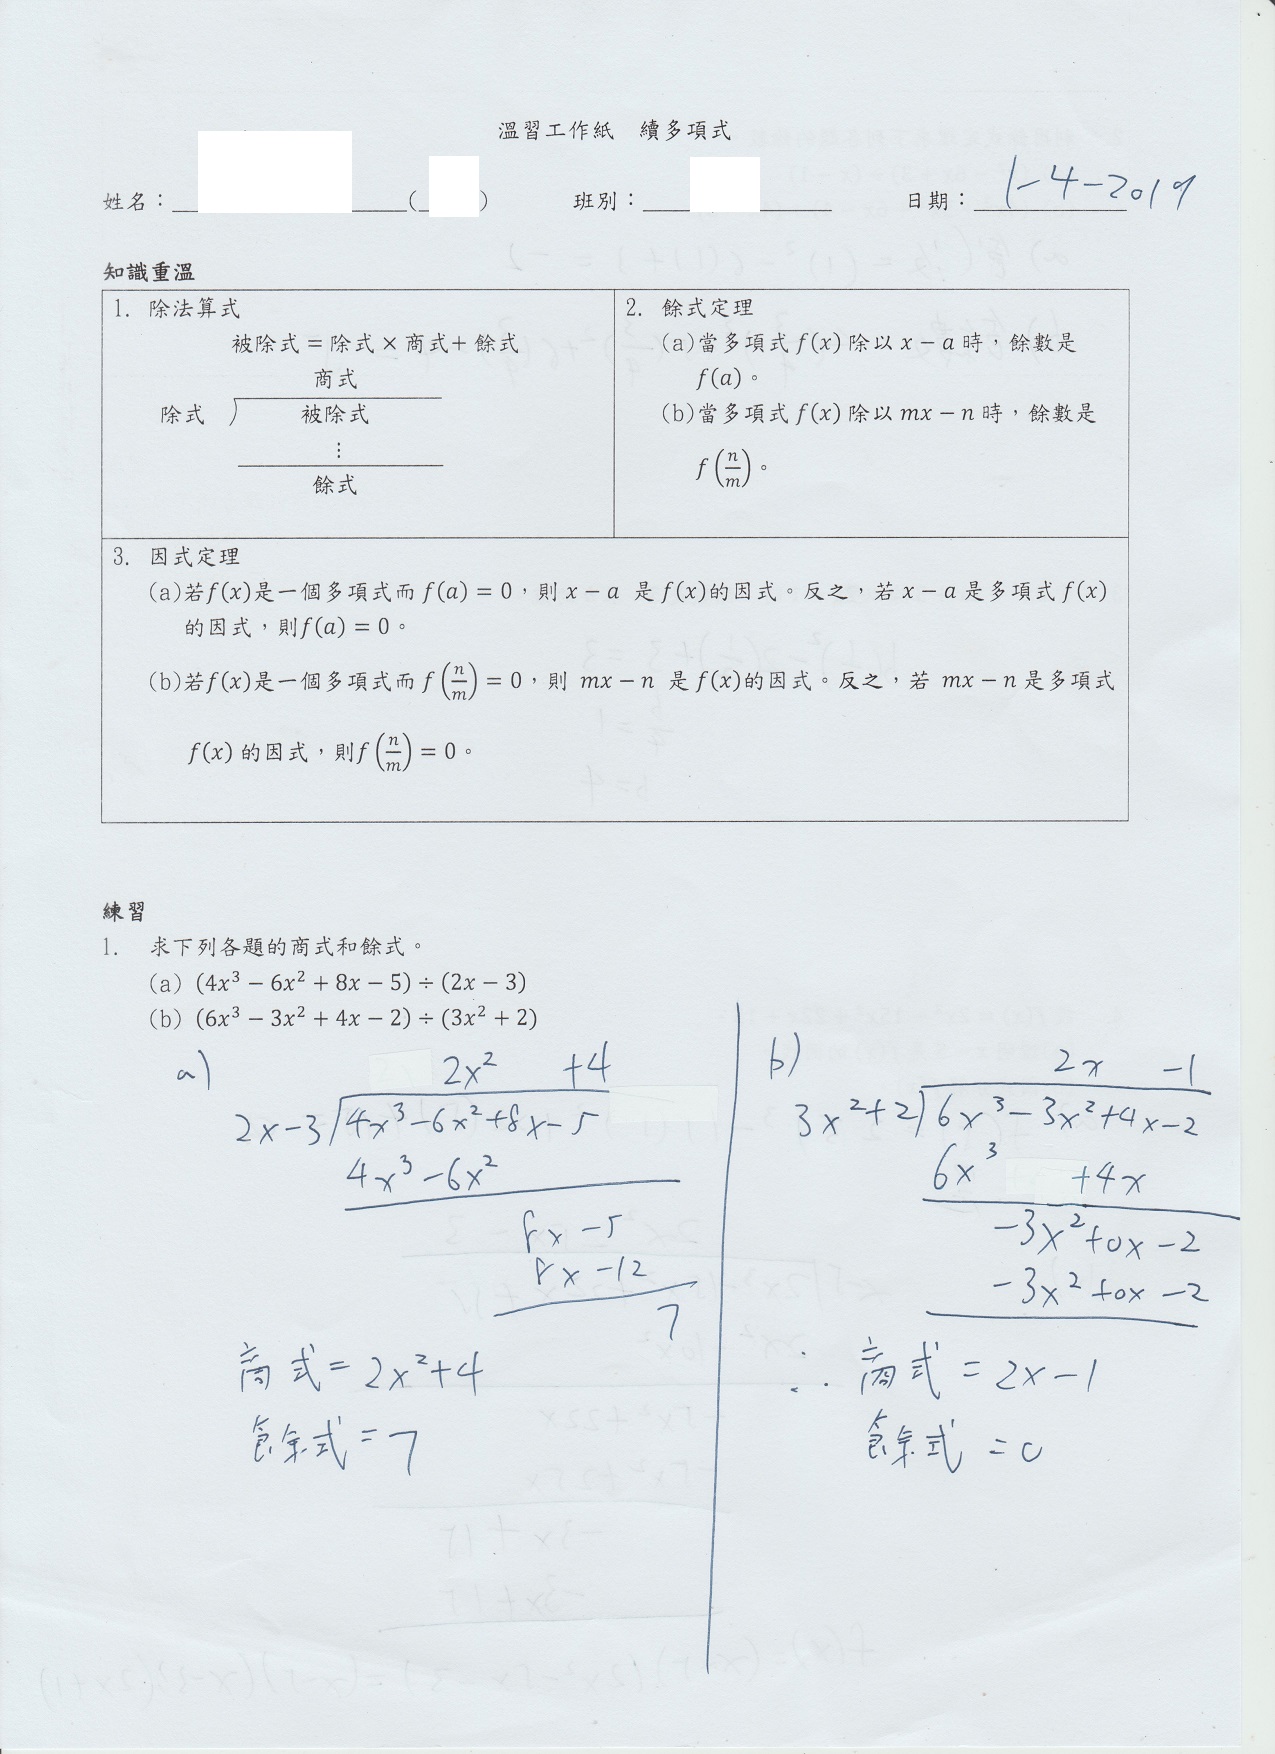 溫習工作紙　續多項式
姓名：　(　)　班別：　日期：1-4-2019
知識重溫
1. 除法算式
被除式 = 除式 × 商式 + 餘式
商式
除式 ) 被除式
⋮
餘式
2. 餘式定理
(a)當多項式 f(x) 除以 x − a 時，餘數是
f(a)。
(b)當多項式 f(x) 除以 mx − n 時，餘數是
f(n/m)。
3. 因式定理
(a)若f(x)是一個多項式而 f(a) = 0，則 x − a 是 f(x)的因式。反之，若 x − a 是多項式 f(x)
的因式，則f(a) = 0。
(b)若f(x)是一個多項式而 f(n/m) = 0，則 mx − n 是 f(x)的因式。反之，若 mx − n 是多項式
f(x) 的因式，則f(n/m) = 0。
練習
1. 求下列各題的商式和餘式。
(a) (4x³ − 6x² + 8x − 5) ÷ (2x − 3)
(b) (6x³ − 3x² + 4x − 2) ÷ (3x² + 2)
a)
2x² +4
2x−3 ) 4x³−6x²+8x−5
4x³−6x²
8x −5
8x −12
7
商式 = 2x²+4
餘式 = 7
b)
2x −1
3x²+2 ) 6x³−3x²+4x−2
6x³ +4x
−3x²+0x−2
−3x²+0x−2
∴ 商式 = 2x−1
餘式 = 0